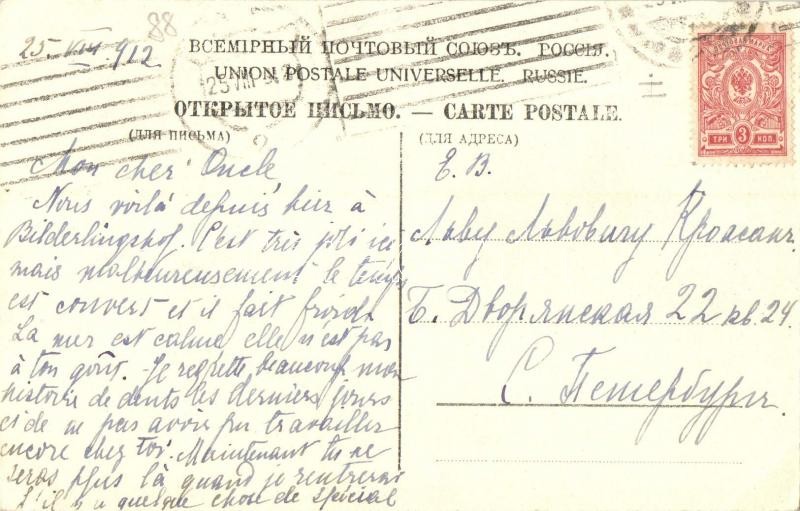 25 VIII 912
88
ВСЕМІРНЫЙ ПОЧТОВЫЙ СОЮЗЪ. РОССІЯ.
UNION POSTALE UNIVERSELLE. RUSSIE.
ОТКРЫТОЕ ПИСЬМО. — CARTE POSTALE.
(ДЛЯ ПИСЬМА)
(ДЛЯ АДРЕСА)
ТРИ 3 КОП
Mon cher Oncle
Nous voilà depuis hier à
Bilderlingshof. C'est très joli ici
mais malheureusement le temps
est couvert et il fait froid.
La mer est calme elle n'est pas
à ton goût. Je regrette beaucoup mon
histoire de dents les derniers jours
et de ne pas avoir pu travailler
encore chez toi. Maintenant tu ne
seras plus là quand je rentrerai
S'il y a quelque chose de spécial
Е. В.
Льву Львовичу
Б. Дворянская 22 кв. 24
С. Петербургъ